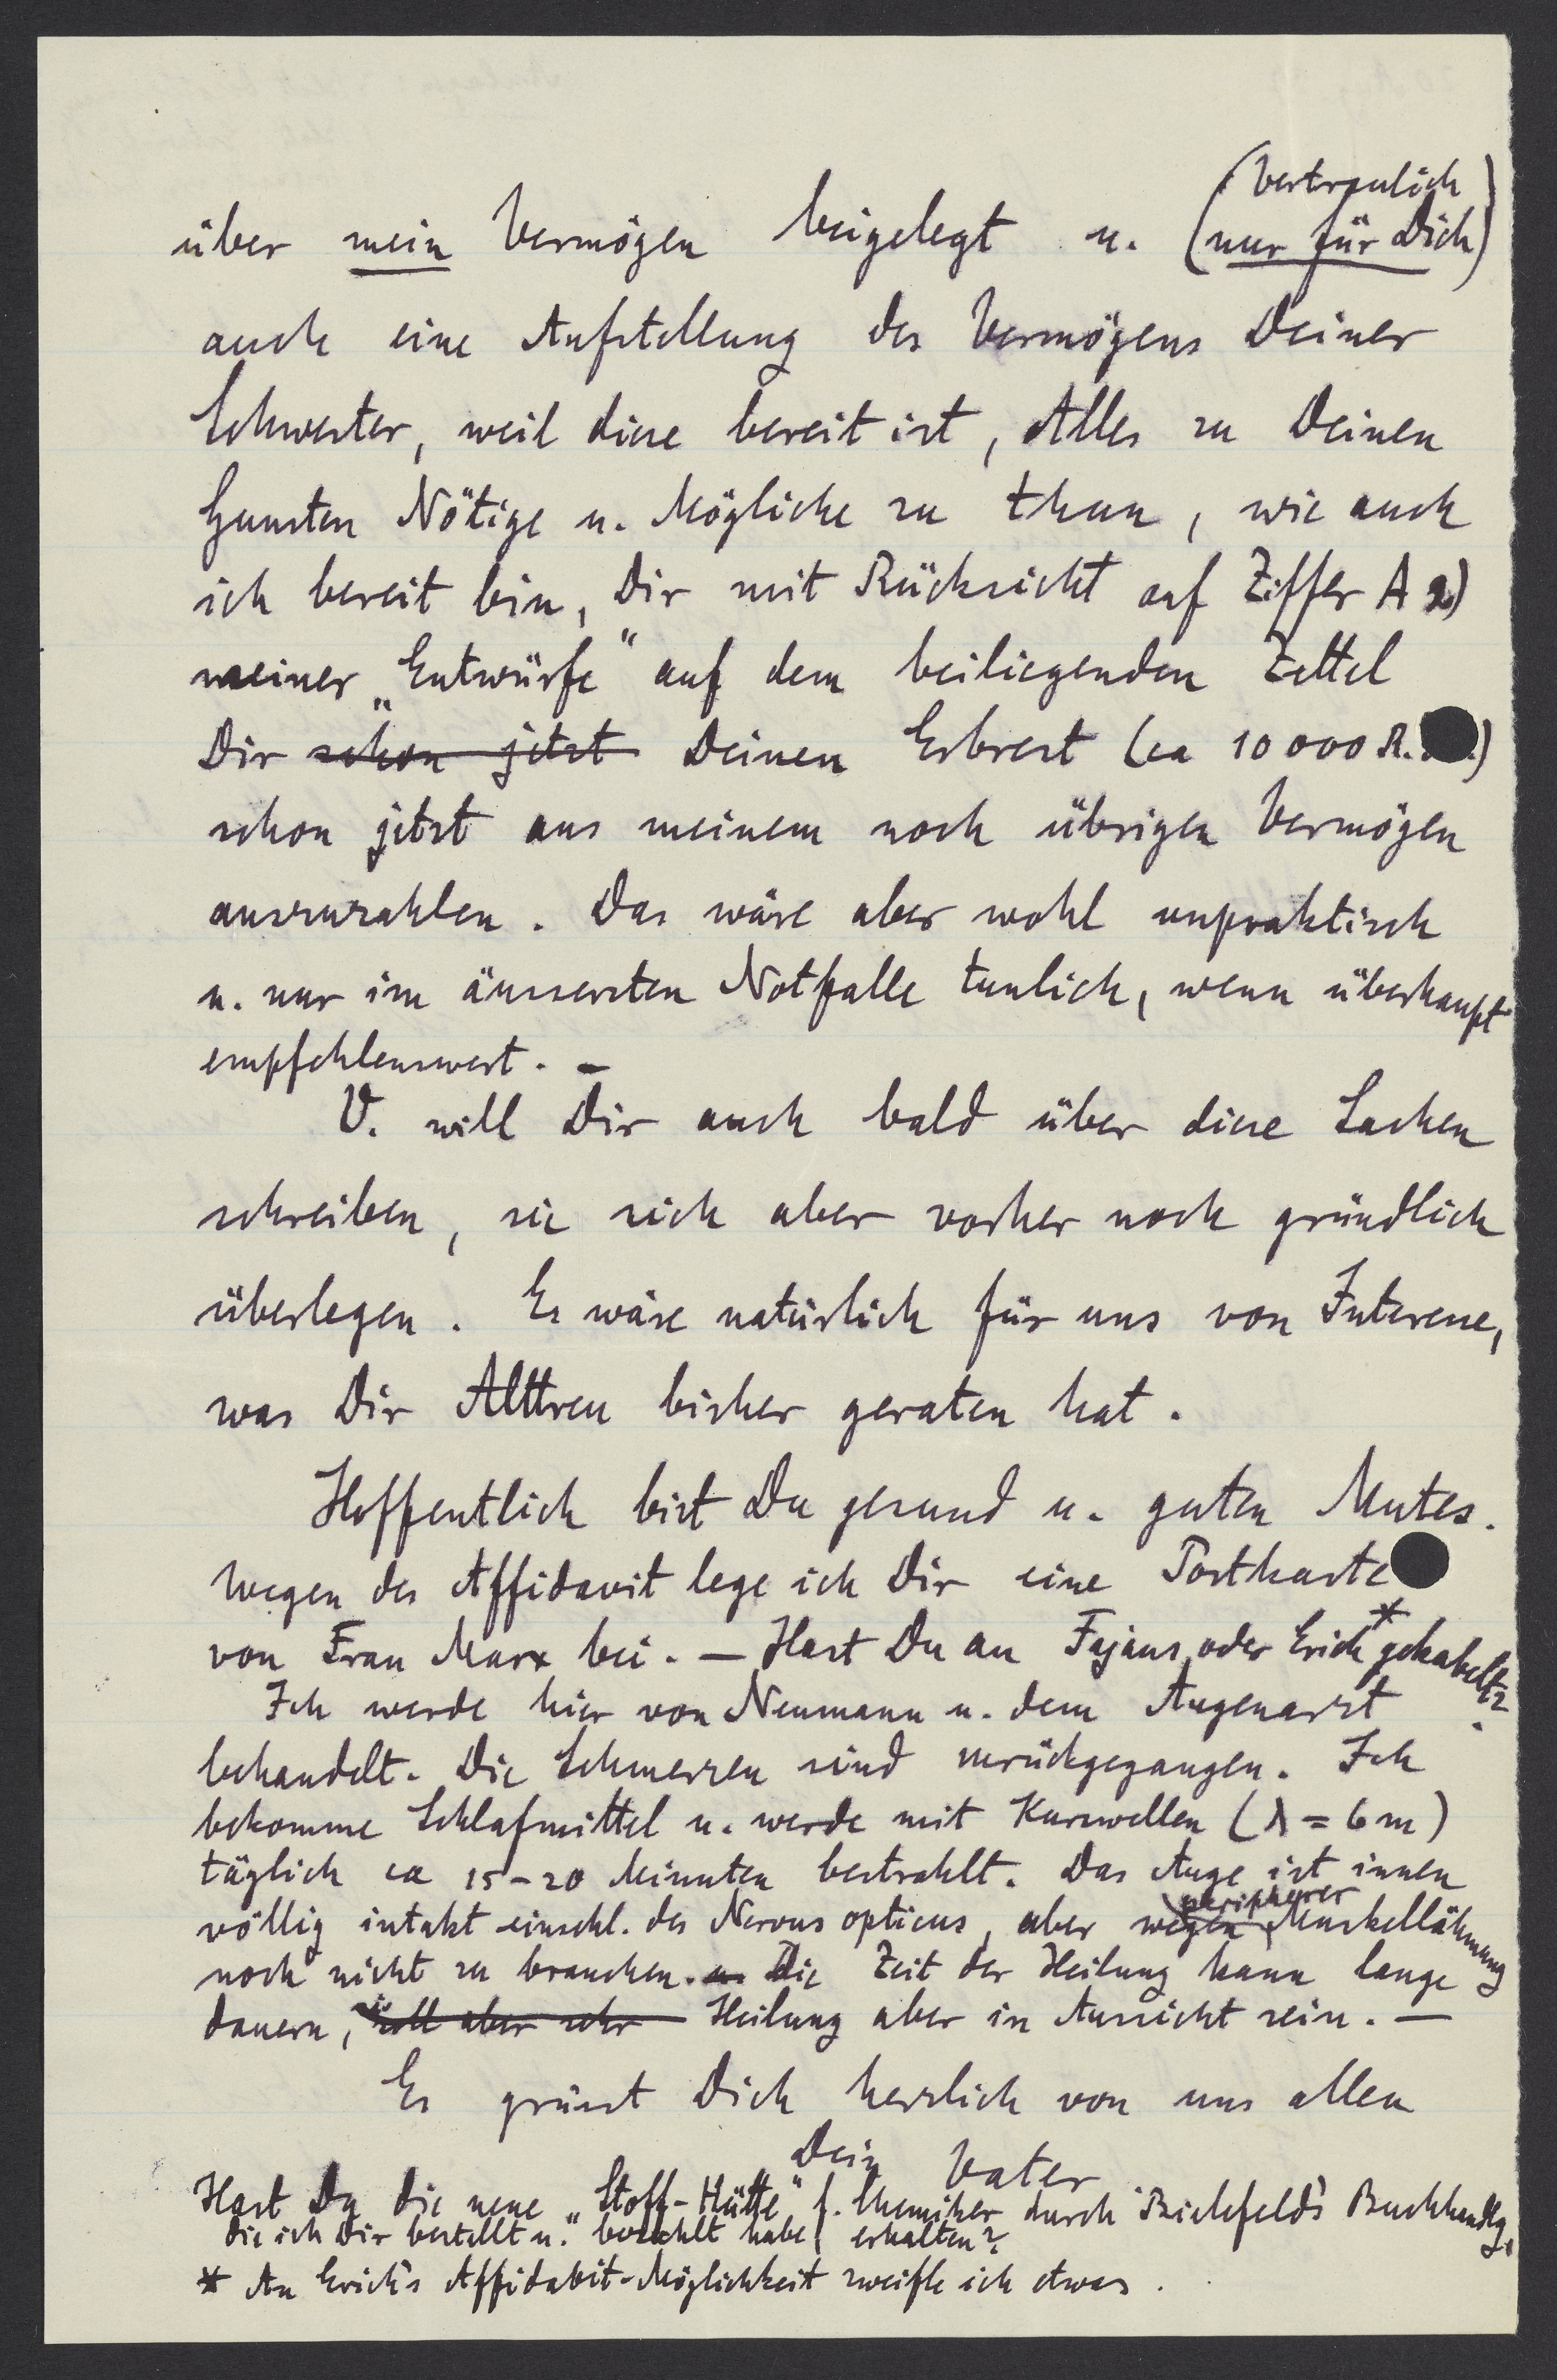 (Vertraulich)
über mein Vermögen beigelegt u. (nur für Dich)
auch eine Aufstellung des Vermögens Deiner
Schwester, weil diese bereit ist, Alles zu Deinen
Gunsten Nötige u. Mögliche zu thun, wie auch
ich bereit bin, Dir mit Rücksicht auf Ziffer A 2)
meiner „Entwürfe“ auf dem beiliegenden Zettel
Dir schon jetzt Deinen Erbrest (ca 10 000 R.
schon jetzt aus meinem noch übrigen Vermögen
auszuzahlen. Das wäre aber wohl unpraktisch
u. nur im äussersten Notfalle tunlich, wenn überhaupt
empfehlenswert. –
V. will Dir auch bald über diese Sachen
schreiben, sie sich aber vorher noch gründlich
überlegen. Es wäre natürlich für uns von Interesse,
was Dir Alttreu bisher geraten hat.
Hoffentlich bist Du gesund u. guten Mutes.
Wegen des Affidavit lege ich Dir eine Postkarte
von Frau Marx bei. – Hast Du an Fajans, oder Erich* gekabelt?
Ich werde hier von Neumann u. dem Augenarzt
behandelt. Die Schmerzen sind zurückgegangen. Ich
bekomme Schlafmittel u. werde mit Kurzwellen (λ = 6 m)
täglich ca 15–20 Minuten bestrahlt. Das Auge ist innen
völlig intakt einschl. des Nervus opticus, aber wegen peripherer Muskellähmung
noch nicht zu brauchen. u. Die Zeit der Heilung kann lange
dauern, soll aber sehr Heilung aber in Aussicht sein. –
Es grüsst Dich herzlich von uns allen
Dein Vater
Hast Du die neue „Stoff-Hütte“ f. Chemiker durch Bielefeld's Buchhandlg.
die ich Dir bestellt u. bezahlt habe, erhalten?
* An Erich's Affidabit-Möglichkeit zweifle ich etwas.